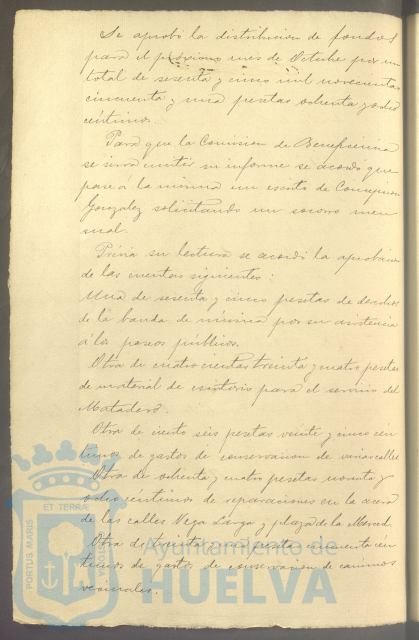 Se aprobó la distribucion de fondos
para el próximo mes de Octubre por un
total de sesenta y cinco mil novecientas
cincuenta y una pesetas ochenta y ocho
céntimos.
Para que la Comision de Beneficencia
se sirva emitir su informe se acordó que
pase á la misma un escrito de Concepcion
Gonzalez solicitando un socorro men
sual.
Prévia su lectura se acordó la aprobacion
de las cuentas siguientes:
Una de sesenta y cinco pesetas de derechos
de la banda de música por su asistencia
á los paseos públicos.
Otra de cuatrocientas treinta y cuatro pesetas
de material de escritorio para el servicio del
Matadero.
Otra de ciento seis pesetas veinte y cinco cén
timos de gastos de conservacion de varias calles
Otra de ochenta y cuatro pesetas noventa y
ocho centimos de reparaciones en la acera
de las calles Vega Larga y plaza de la Merced.
Otra de treinta y una pesetas cincuenta cén
timos de gastos de conservacion de caminos
vecinales.
PORTUS MARIS
ET TERRAE
CUSTODIA
Ayuntamiento de
HUELVA